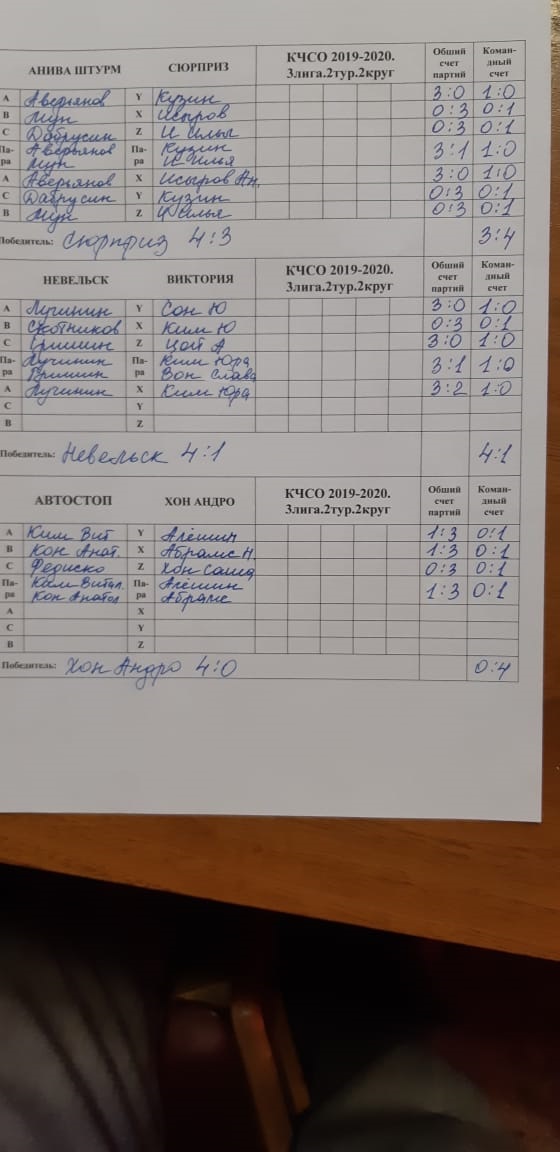 АНИВА ШТУРМ СЮРПРИЗ КЧСО 2019-2020. 3лига.2тур.2круг Общий счет партий Коман-дный счет
А Аверьянов Y Кузин 3:0 1:0
В Мун X Исыров 0:3 0:1
С Дабрусин Z И Илья 0:3 0:1
Па-ра Аверьянов Мун Па-ра Кузин И Илья 3:1 1:0
А Аверьянов X Исыров Ан. 3:0 1:0
С Дабрусин Y Кузин 0:3 0:1
В Мун Z И Илья 0:3 0:1
Победитель: Сюрприз 4:3 3:4
НЕВЕЛЬСК ВИКТОРИЯ КЧСО 2019-2020. 3лига.2тур.2круг Общий счет партий Коман-дный счет
А Лучинин Y Сон Ю 3:0 1:0
В Скотников X Ким Ю 0:3 0:1
С Гришин Z Цой А 3:0 1:0
Па-ра Лучинин Гришин Па-ра Ким Юра Вон Слава 3:1 1:0
А Лучинин X Ким Юра 3:2 1:0
С Y
В Z
Победитель: Невельск 4:1 4:1
АВТОСТОП ХОН АНДРО КЧСО 2019-2020. 3лига.2тур.2круг Общий счет партий Коман-дный счет
А Ким Вит Y Алёшин 1:3 0:1
В Кон Анат. X Абрамс Н. 1:3 0:1
С Фериско Z Хон Саша 0:3 0:1
Па-ра Ким Витал. Кон Анатол Па-ра Алёшин Абрамс 1:3 0:1
А X
С Y
В Z
Победитель: Хон Андро 4:0 0:4